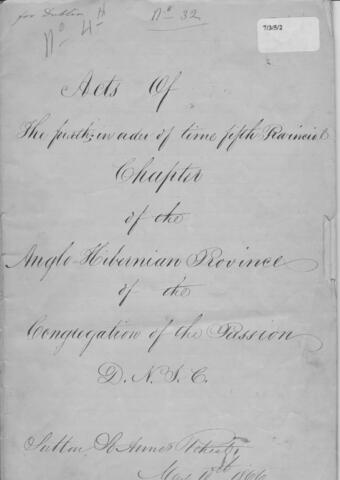 for Dublin
No 4 H
No 32
7/3/5/2
Acts Of
The in order of time fifth Provincial
Chapter
of the
Anglo-Hibernian Province
of the
Congregation of the Passion
D. N. J. C.
Sutton, St Annes
May 1866